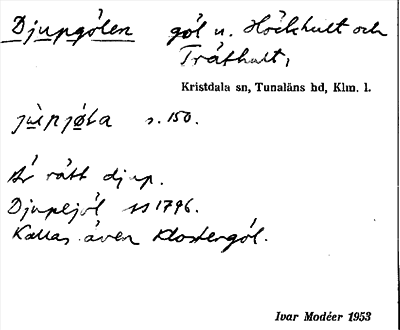 Djupgölen göl u. Höckhult och
Tråthult,
Kristdala sn, Tunaläns hd, Klm. l.
s. 150.
Är rätt djup.
Djupejöl 1796.
Kallas även Klostergöl.
Ivar Modéer 1953